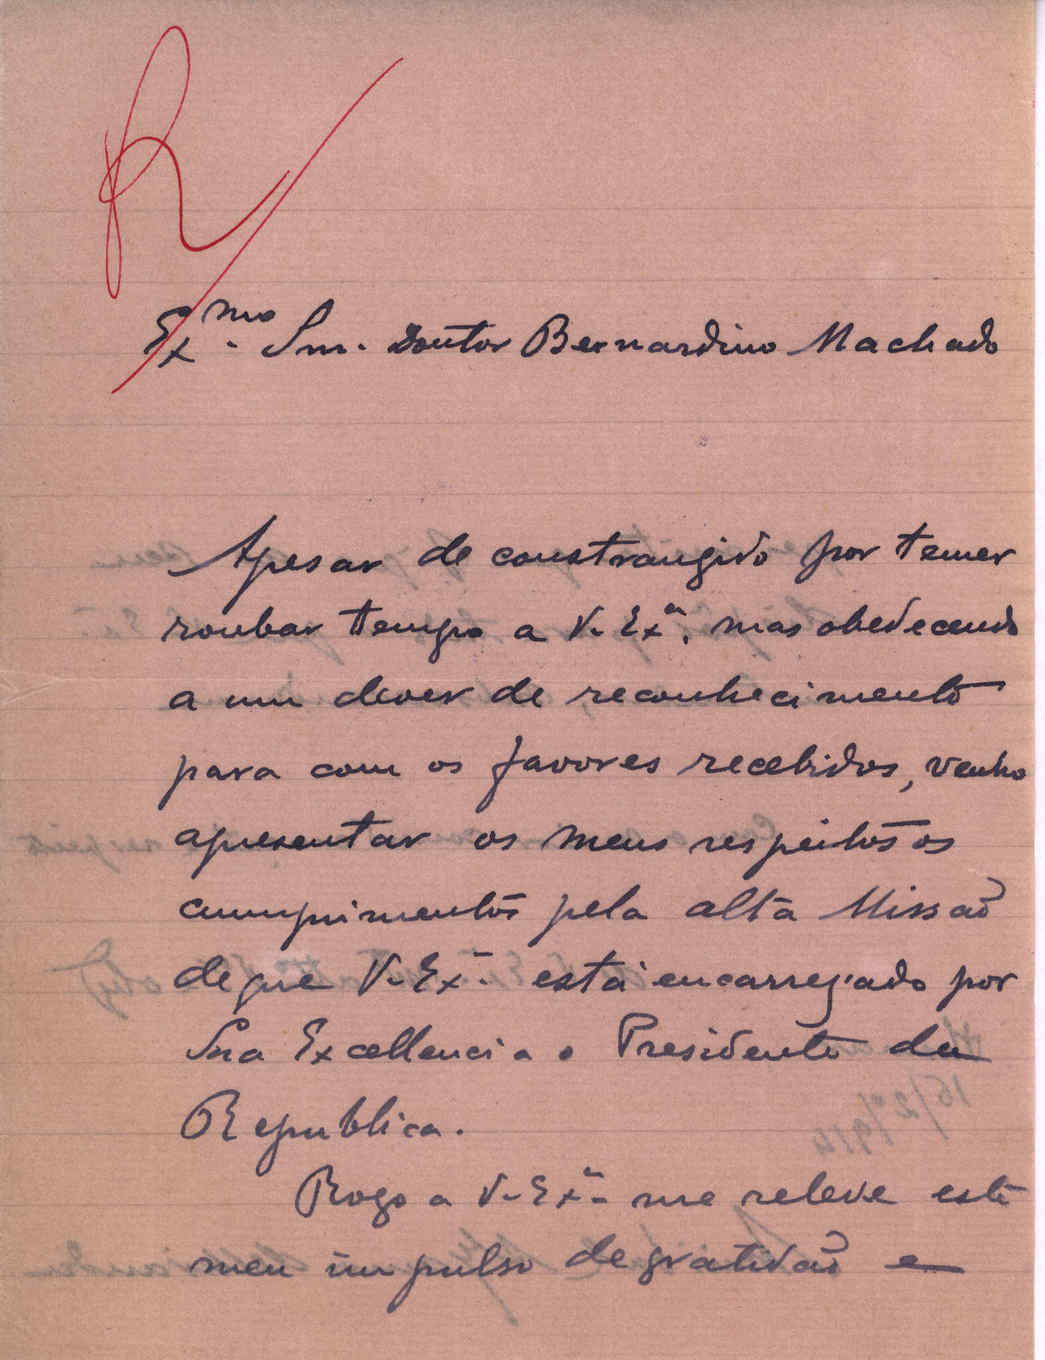 R
Ex.mo Snr. Doutor Bernardino Machado
Apesar de constrangido por temer
roubar tempo a V. Exa. mas obedecendo
a um dever de reconhecimento
para com os favores recebidos, venho
apresentar os meus respeitosos
cumprimentos pela alta Missão
de que V. Exa. está encarregado por
Sua Excellencia o Presidente da
Republica.
Rogo a V. Exa. me releve este
meu impulso de gratidão e